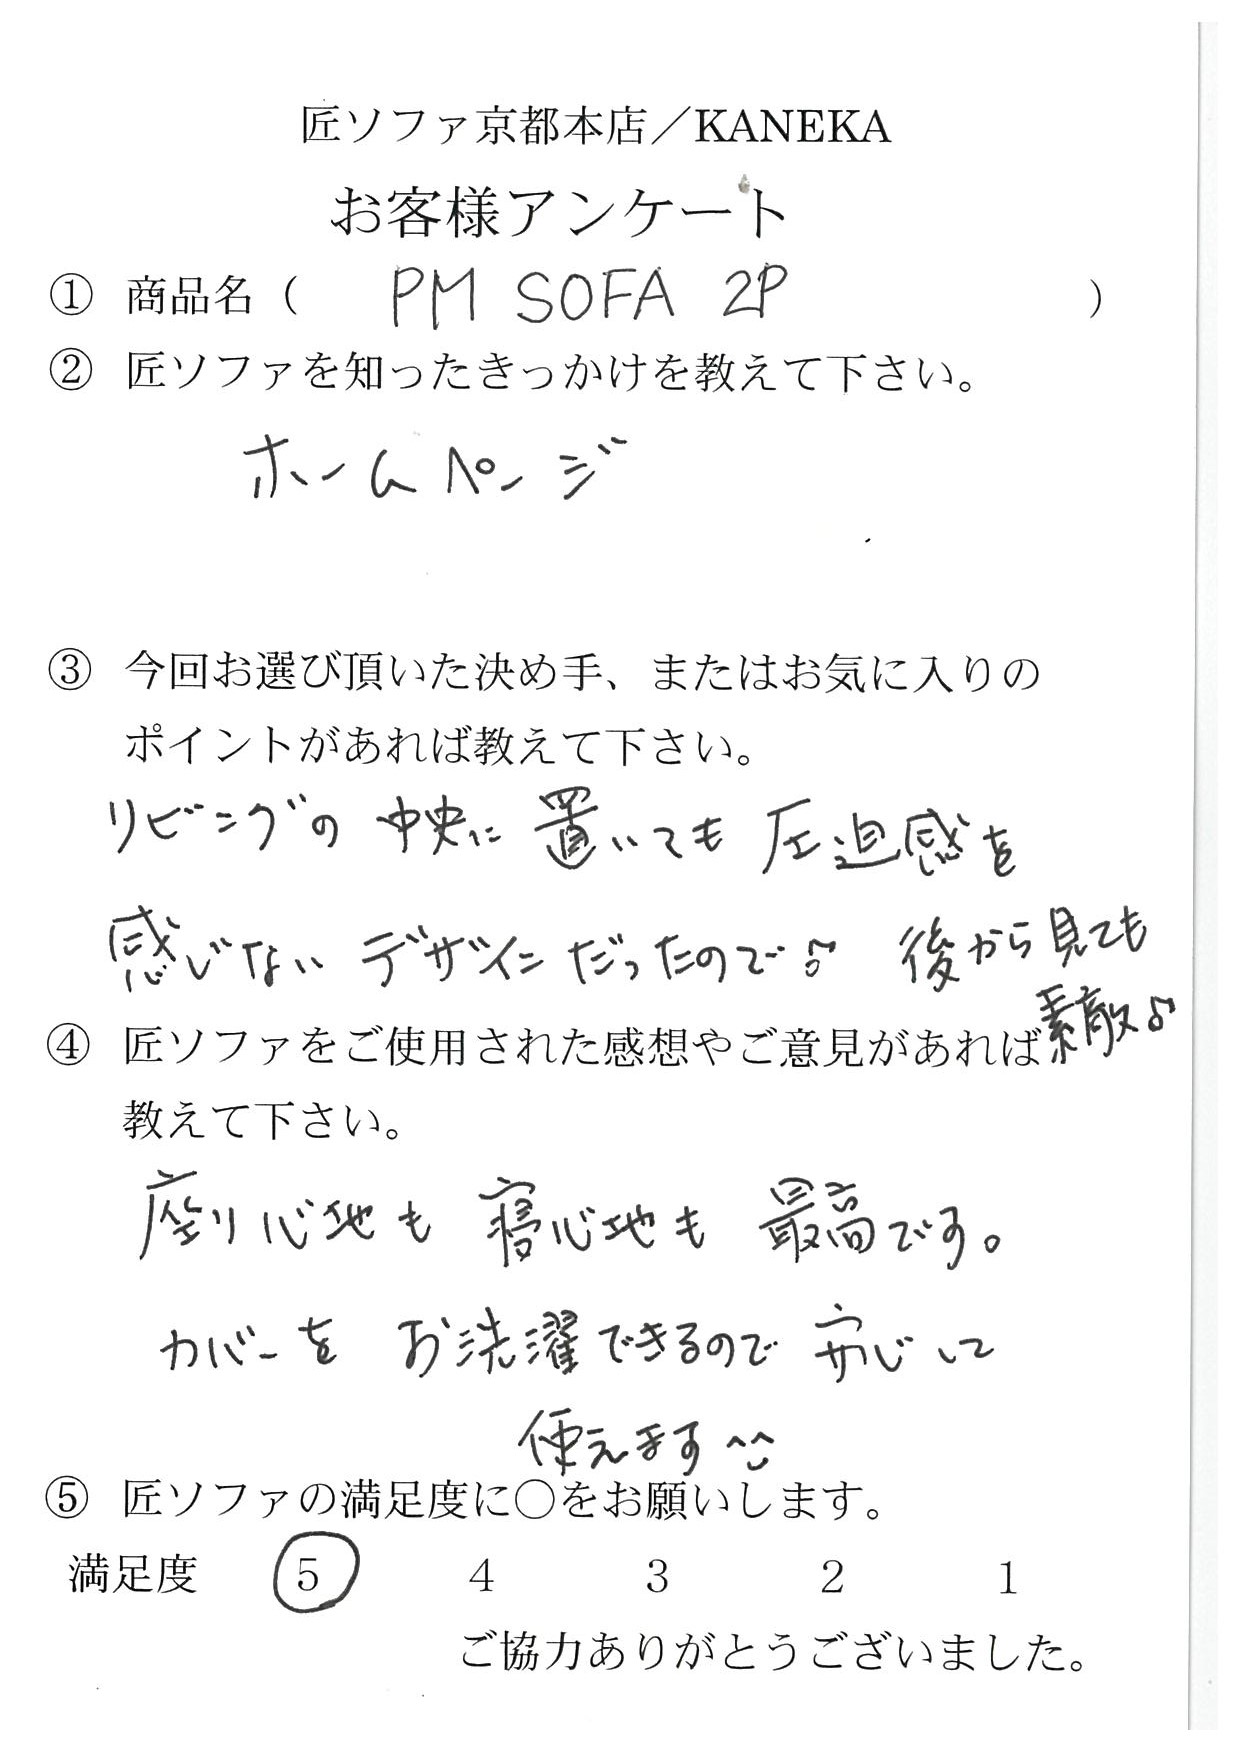 匠ソファ京都本店／KANEKA
お客様アンケート
① 商品名（ PM SOFA 2P ）
② 匠ソファを知ったきっかけを教えて下さい。
ホームページ
③ 今回お選び頂いた決め手、またはお気に入りの
ポイントがあれば教えて下さい。
リビングの中央に置いても圧迫感を
感じないデザインだったので♪ 後から見ても
素敵♪
④ 匠ソファをご使用された感想やご意見があれば
教えて下さい。
座り心地も寝心地も最高です。
カバーをお洗濯できるので安心して
使えます^^
⑤ 匠ソファの満足度に○をお願いします。
満足度 5 4 3 2 1
ご協力ありがとうございました。